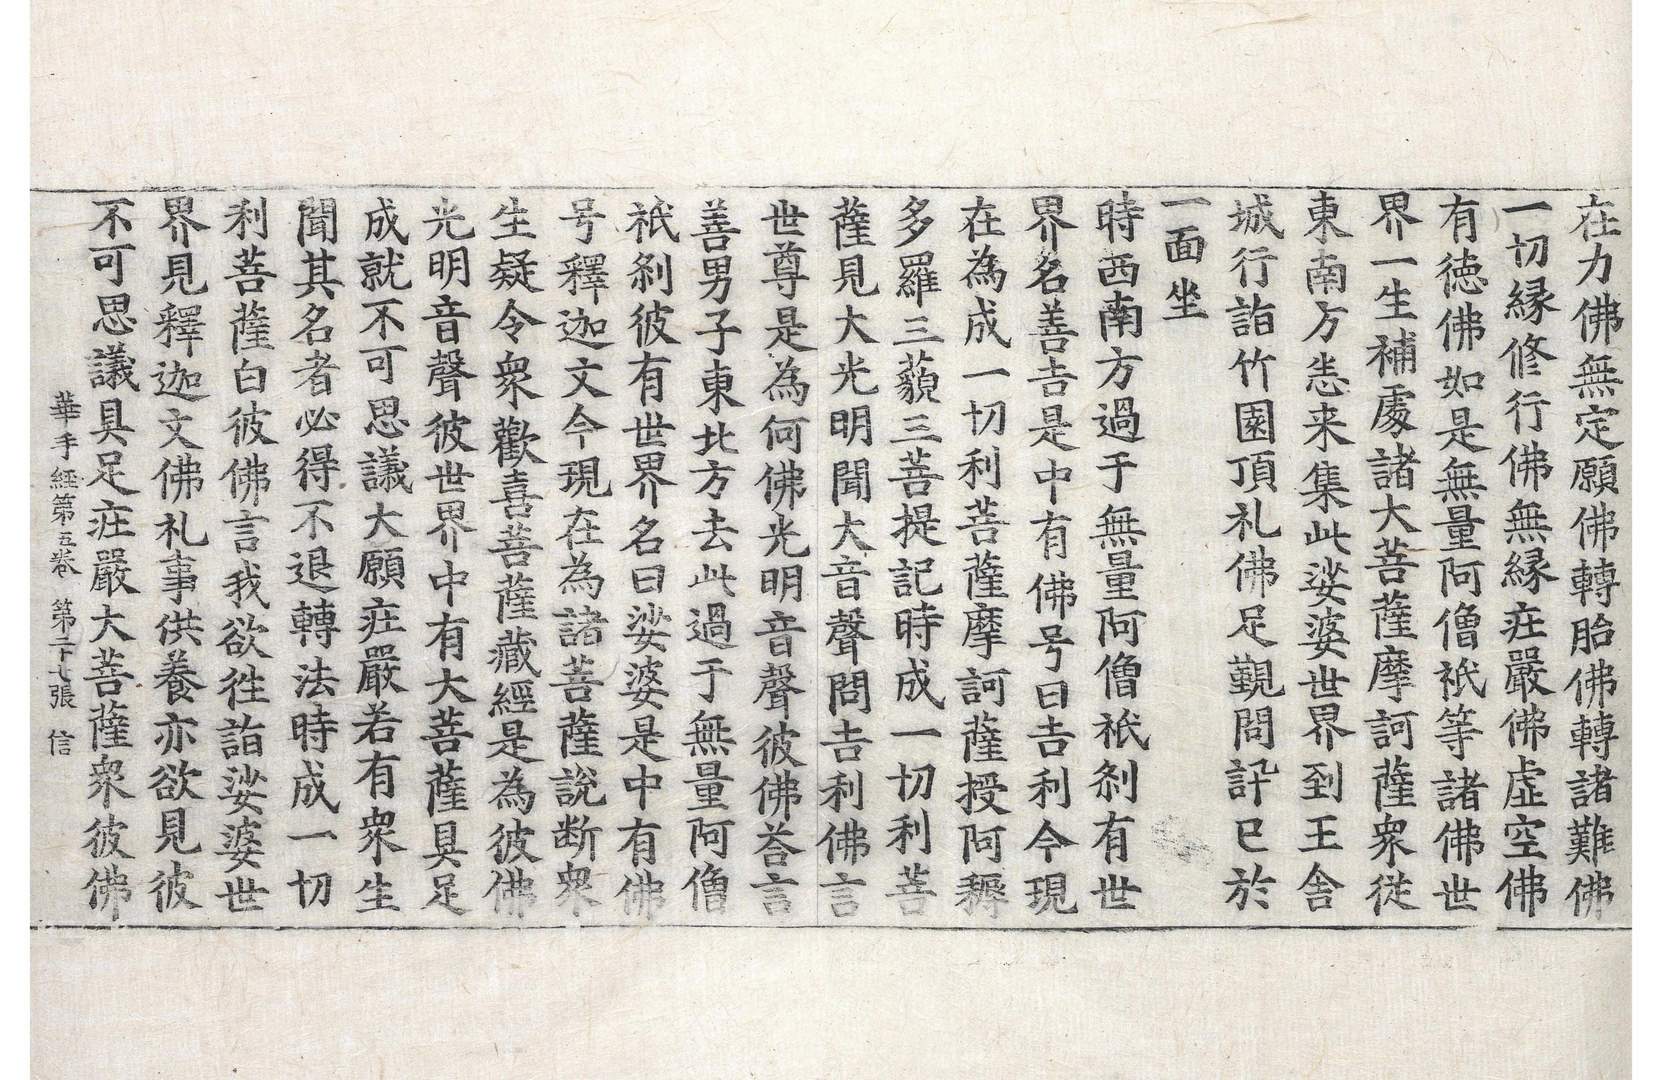 在力佛無定願佛轉胎佛轉諸難佛
一切縁修行佛無縁疘嚴佛虛空佛
有徳佛如是無量阿僧祇等諸佛世
界一生補處諸大菩薩摩訶薩衆從
東南方恙来集此娑婆世界到王舎
城行詣竹園頂礼佛足覲問訊已於
一面坐
時西南方過于無量阿僧祇刹有世
界名善吉是中有佛号曰吉利今現
在為成一切利菩薩摩訶薩授阿耨
多羅三藐三菩提記時成一切利菩
薩見大光明聞大音聲問吉利佛言
世尊是為何佛光明音聲彼佛荅言
善男子東北方去此過于無量阿僧
祇刹彼有世界名曰娑婆是中有佛
号釋迦文今現在為諸菩薩說断衆
生疑令衆歡喜菩薩藏經是為彼佛
光明音聲彼世界中有大菩薩具足
成就不可思議大願疘嚴若有衆生
聞其名者必得不退轉法時成一切
利菩薩白彼佛言我欲徃詣娑婆世
界見釋迦文佛礼事供養亦欲見彼
不可思議具足疘嚴大菩薩衆彼佛
華手經第五卷 第二十七張 信